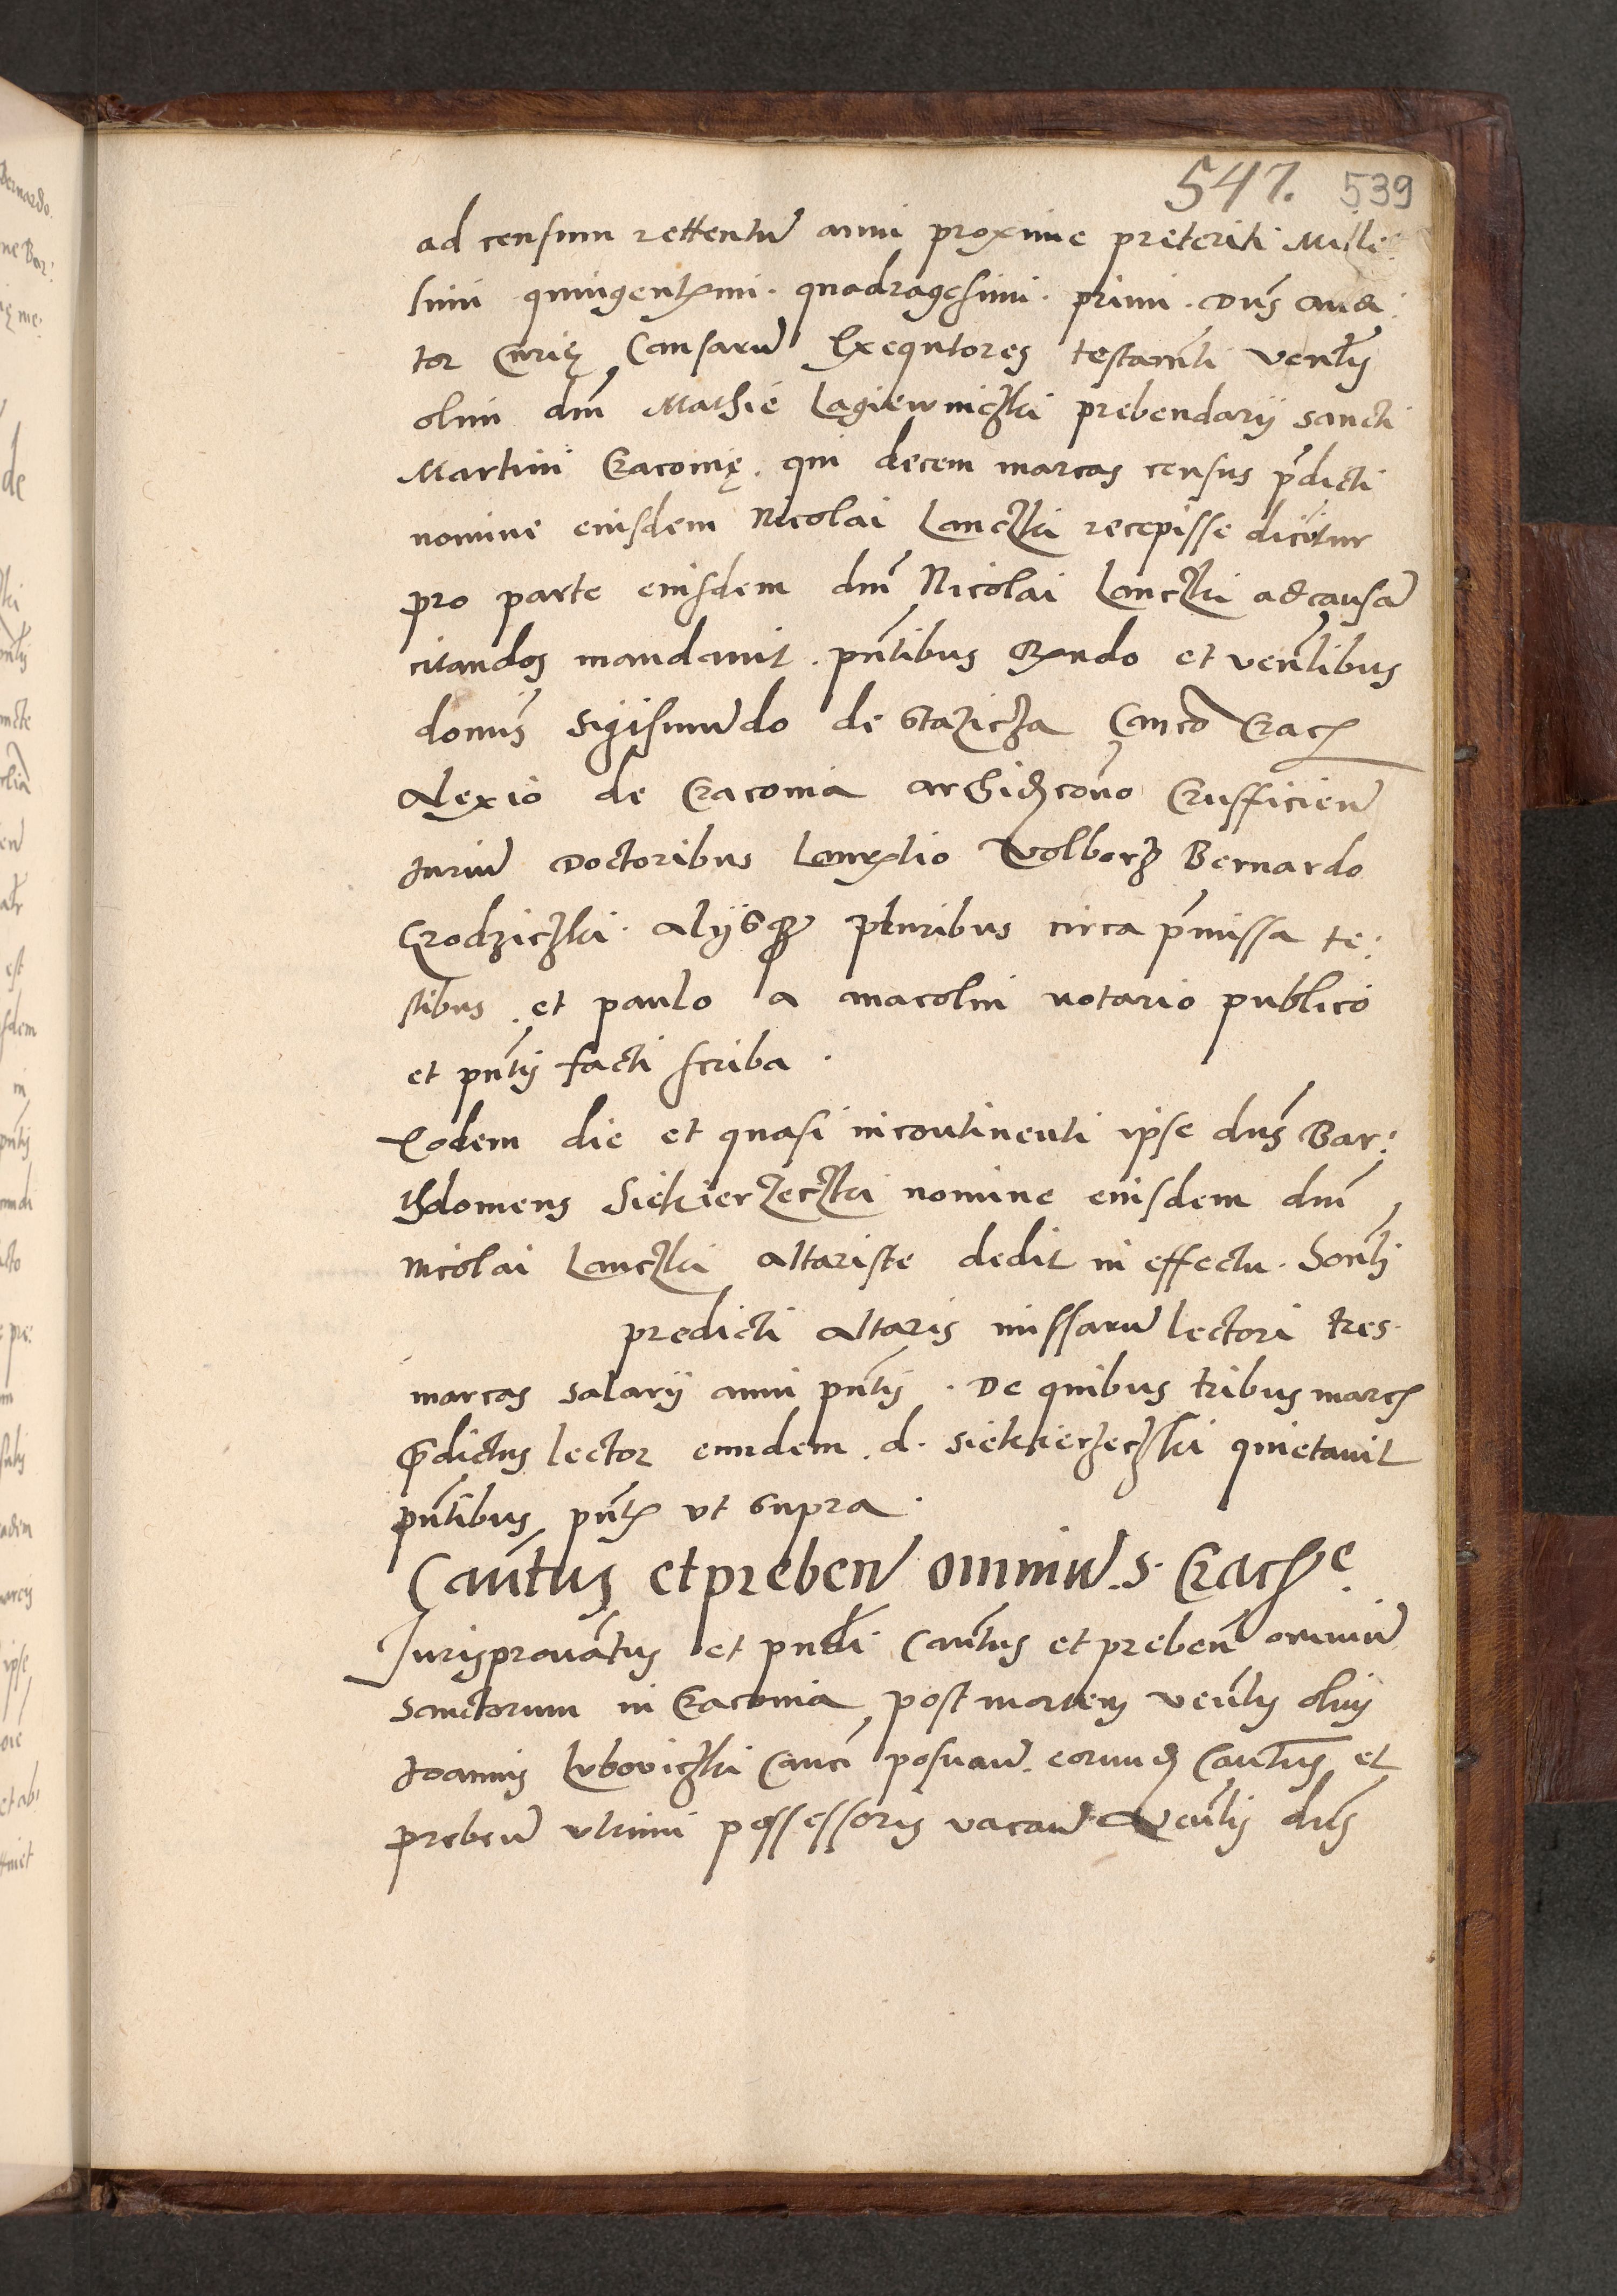 547. 539
ad censum rettentu anni proxime preteriti Mille
simi quingentesimi. quadragesimi. primi. Dns audi:
tor Curię Causaru Exequtores testamti venlis
olim dni Mathie Lagiewniczki prebendarij sancti
Martini Cracovię. qui decem marcas census pdicti
nomine eiusdem Nicolai Lanczki recepisse dicitur
pro parte eiusdem dni Nicolai Lanczki ad causa
citandos mandavit. pntibus Rndo et venlibus
domis Sigismundo de Stazicza Canco Crac
Alexio de Cracovia archidcono Crusficien
Juriu Doctoribus Laurentio Wolborz Bernardo
Grodziczki. alijsque pluribus circa pmissa te:
stibus. et paulo a macolin notario publico
et pntis facti scriba.
Eodem die et quasi incontinenti ipse dns Bar:
tholomeus Siekierzeczki nomine eiusdem dni
Nicolai Lanczki altariste dedit in effectu. honli
predicti altaris missaru lectori tres.
marcas salarij anni pntis. De quibus tribus marc
pdictus lector eundem. d. Siekierzeczki quietavit
pntibus pnt ut supra.
Cantus et preben omniu. s. Crac
Jurispronatus et pndi Cantus et preben omniu
Sanctorum in Cracovia post mortem venlis olim
Joannis Luboviczki Canci posnan. eorund Cantus et
preben ultimi possessoris vacan. Venlis dns